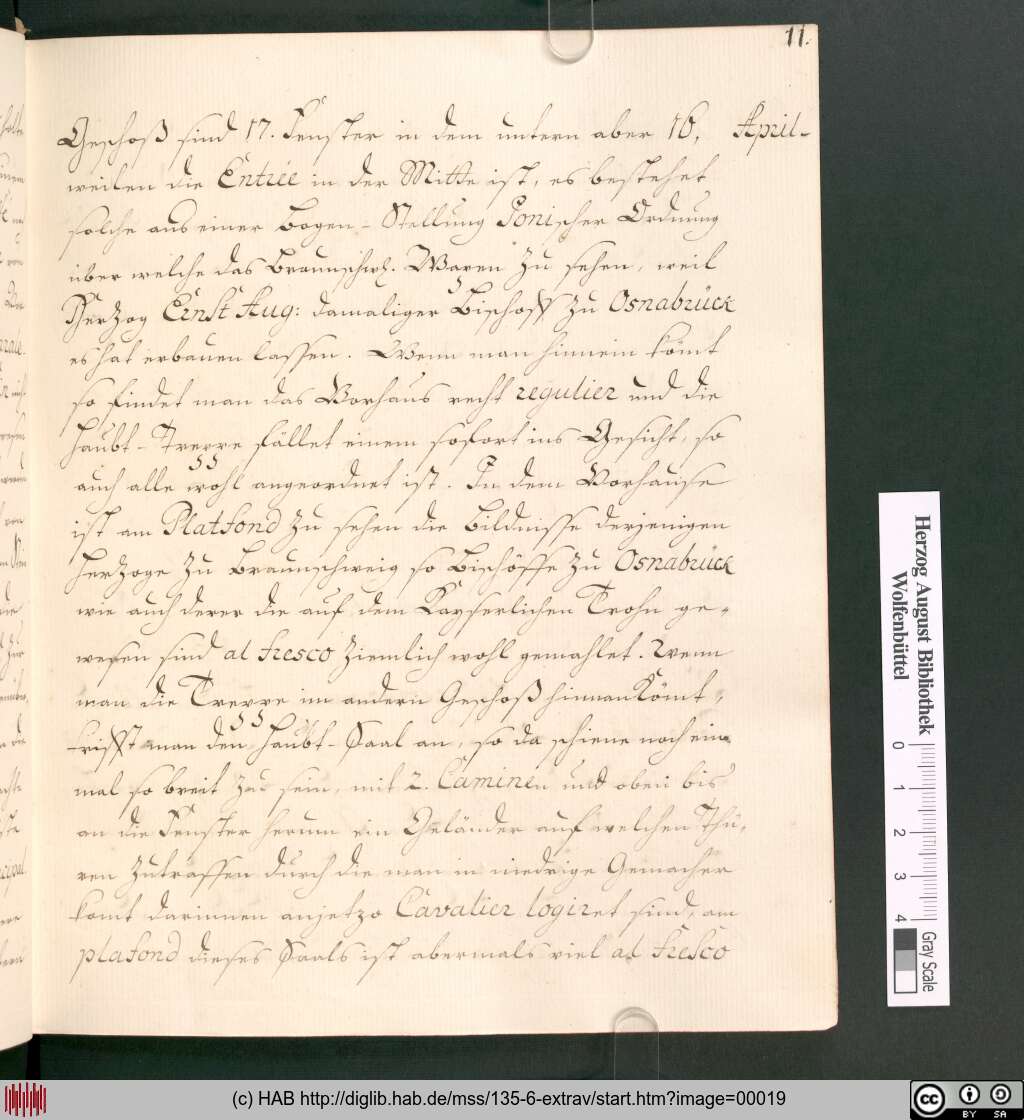 11.
April.
Geschoß sind 17. Fenster in dem untern aber 16,
weilen die Entrée in der Mitte ist, es bestehet
solche aus einer Bogen-Stellung Ionischer Ordnung
über welche das Braunschw. Wapen zu sehen, weil
Hertzog Ernst Aug: damaliger Bischoff zu Osnabrück
es hat erbauen lassen. Wenn man hinnein kömt
so findet man das Vorhaus recht regulier und die
Haubt-Treppe fället einem sofort ins Gesicht, so
auch alle wohl angeordnet ist. In dem Vorhause
ist am Platfond zu sehen die Bildnisse derjenigen
Hertzoge zu Braunschweig so Bischöffe zu Osnabrück
wie auch derer die auf dem Kayserlichen Trohn ge-
wesen sind al fresco ziemlich wohl gemahlet. Wenn
man die Treppe im andern Geschoß hinnan kömt,
trifft man den Haubt-Saal an, so da schiene noch ein
mal so breit zu sein, mit 2. Caminen und oben bis
an die Fenster herum ein Geländer auf welchen Thü-
ren zutraffen durch die man in niedrige Gemächer
komt darinnen anjetzo Cavalier logiret sind, am
plafond dieses Saals ist abermals viel al fresco
Herzog August Bibliothek
Wolfenbüttel
0 1 2 3 4
Gray Scale
(c) HAB http://diglib.hab.de/mss/135-6-extrav/start.htm?image=00019
cc BY SA